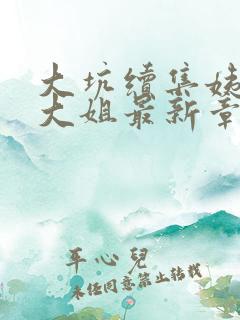 大坑续集姊
大姐最新章
平心儿
未经同意禁止转载